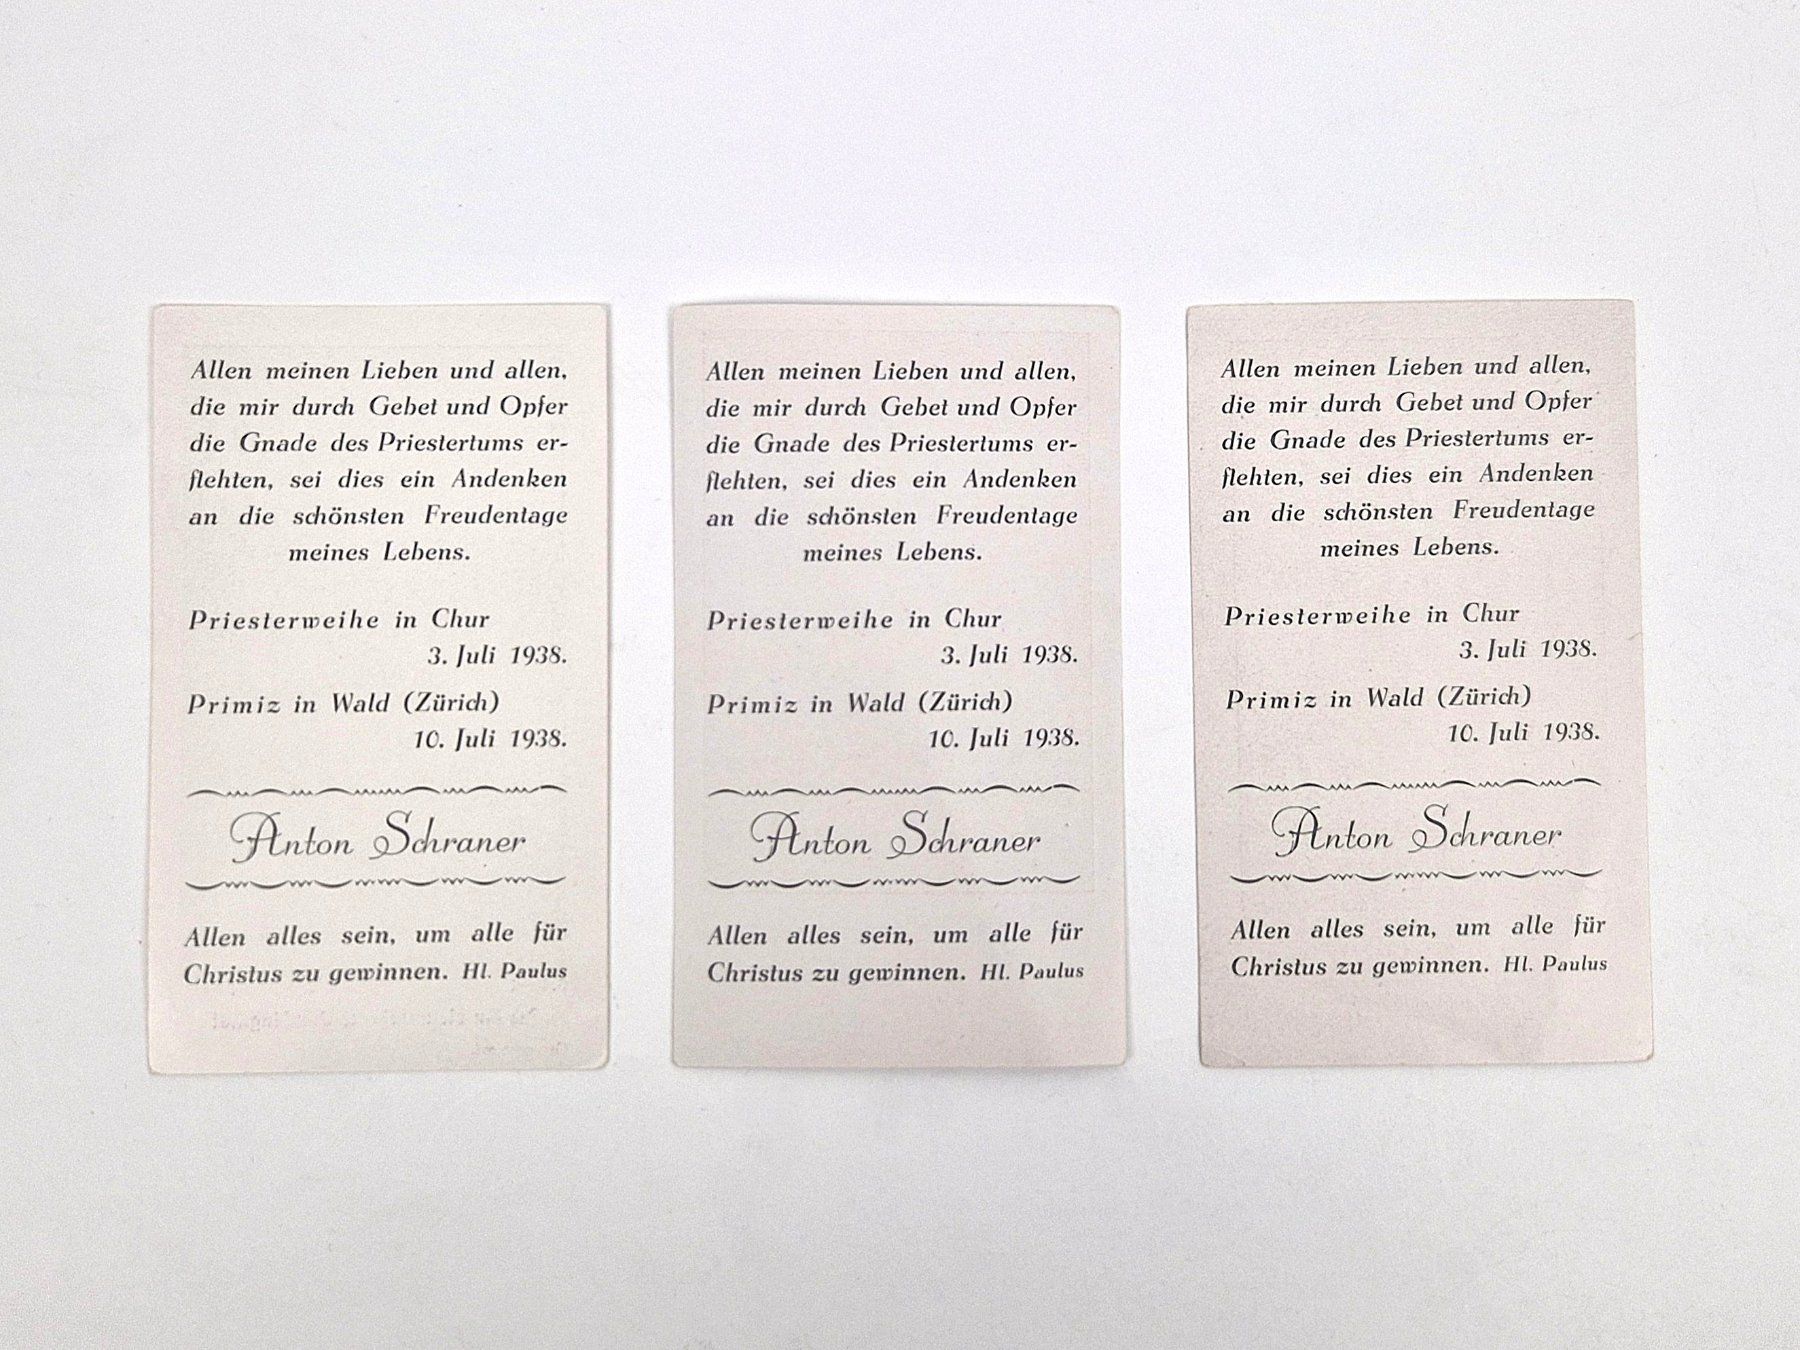 Allen meinen Lieben und allen,
die mir durch Gebet und Opfer
die Gnade des Priestertums er-
flehten, sei dies ein Andenken
an die schönsten Freudentage
meines Lebens.
Priesterweihe in Chur
3. Juli 1938.
Primiz in Wald (Zürich)
10. Juli 1938.
Anton Schraner
Allen alles sein, um alle für
Christus zu gewinnen. Hl. Paulus
Allen meinen Lieben und allen,
die mir durch Gebet und Opfer
die Gnade des Priestertums er-
flehten, sei dies ein Andenken
an die schönsten Freudentage
meines Lebens.
Priesterweihe in Chur
3. Juli 1938.
Primiz in Wald (Zürich)
10. Juli 1938.
Anton Schraner
Allen alles sein, um alle für
Christus zu gewinnen. Hl. Paulus
Allen meinen Lieben und allen,
die mir durch Gebet und Opfer
die Gnade des Priestertums er-
flehten, sei dies ein Andenken
an die schönsten Freudentage
meines Lebens.
Priesterweihe in Chur
3. Juli 1938.
Primiz in Wald (Zürich)
10. Juli 1938.
Anton Schraner
Allen alles sein, um alle für
Christus zu gewinnen. Hl. Paulus